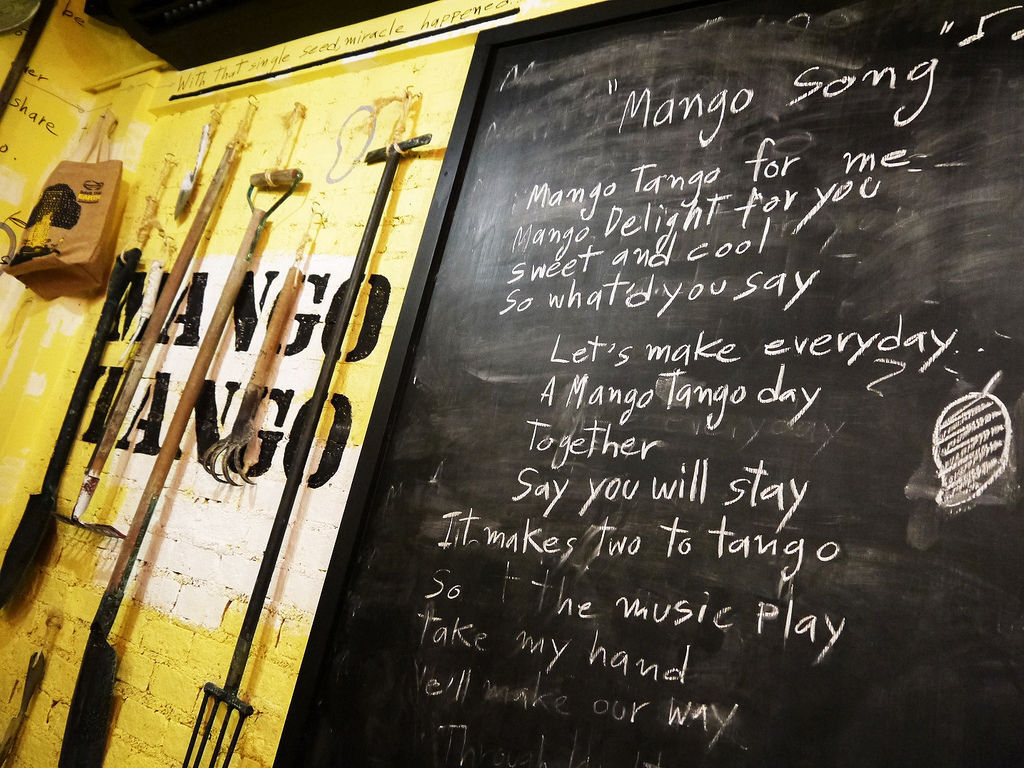 be
share
With that single seed, miracle happened...
MANGO
TANGO
"Mango Song
Mango Tango for me
Mango Delight for you
sweet and cool
So what'd you say
Let's make everyday..
A Mango Tango day
Together
Say you will stay
It makes Two to tango
So the music play
take my hand
e'll make our way
Through